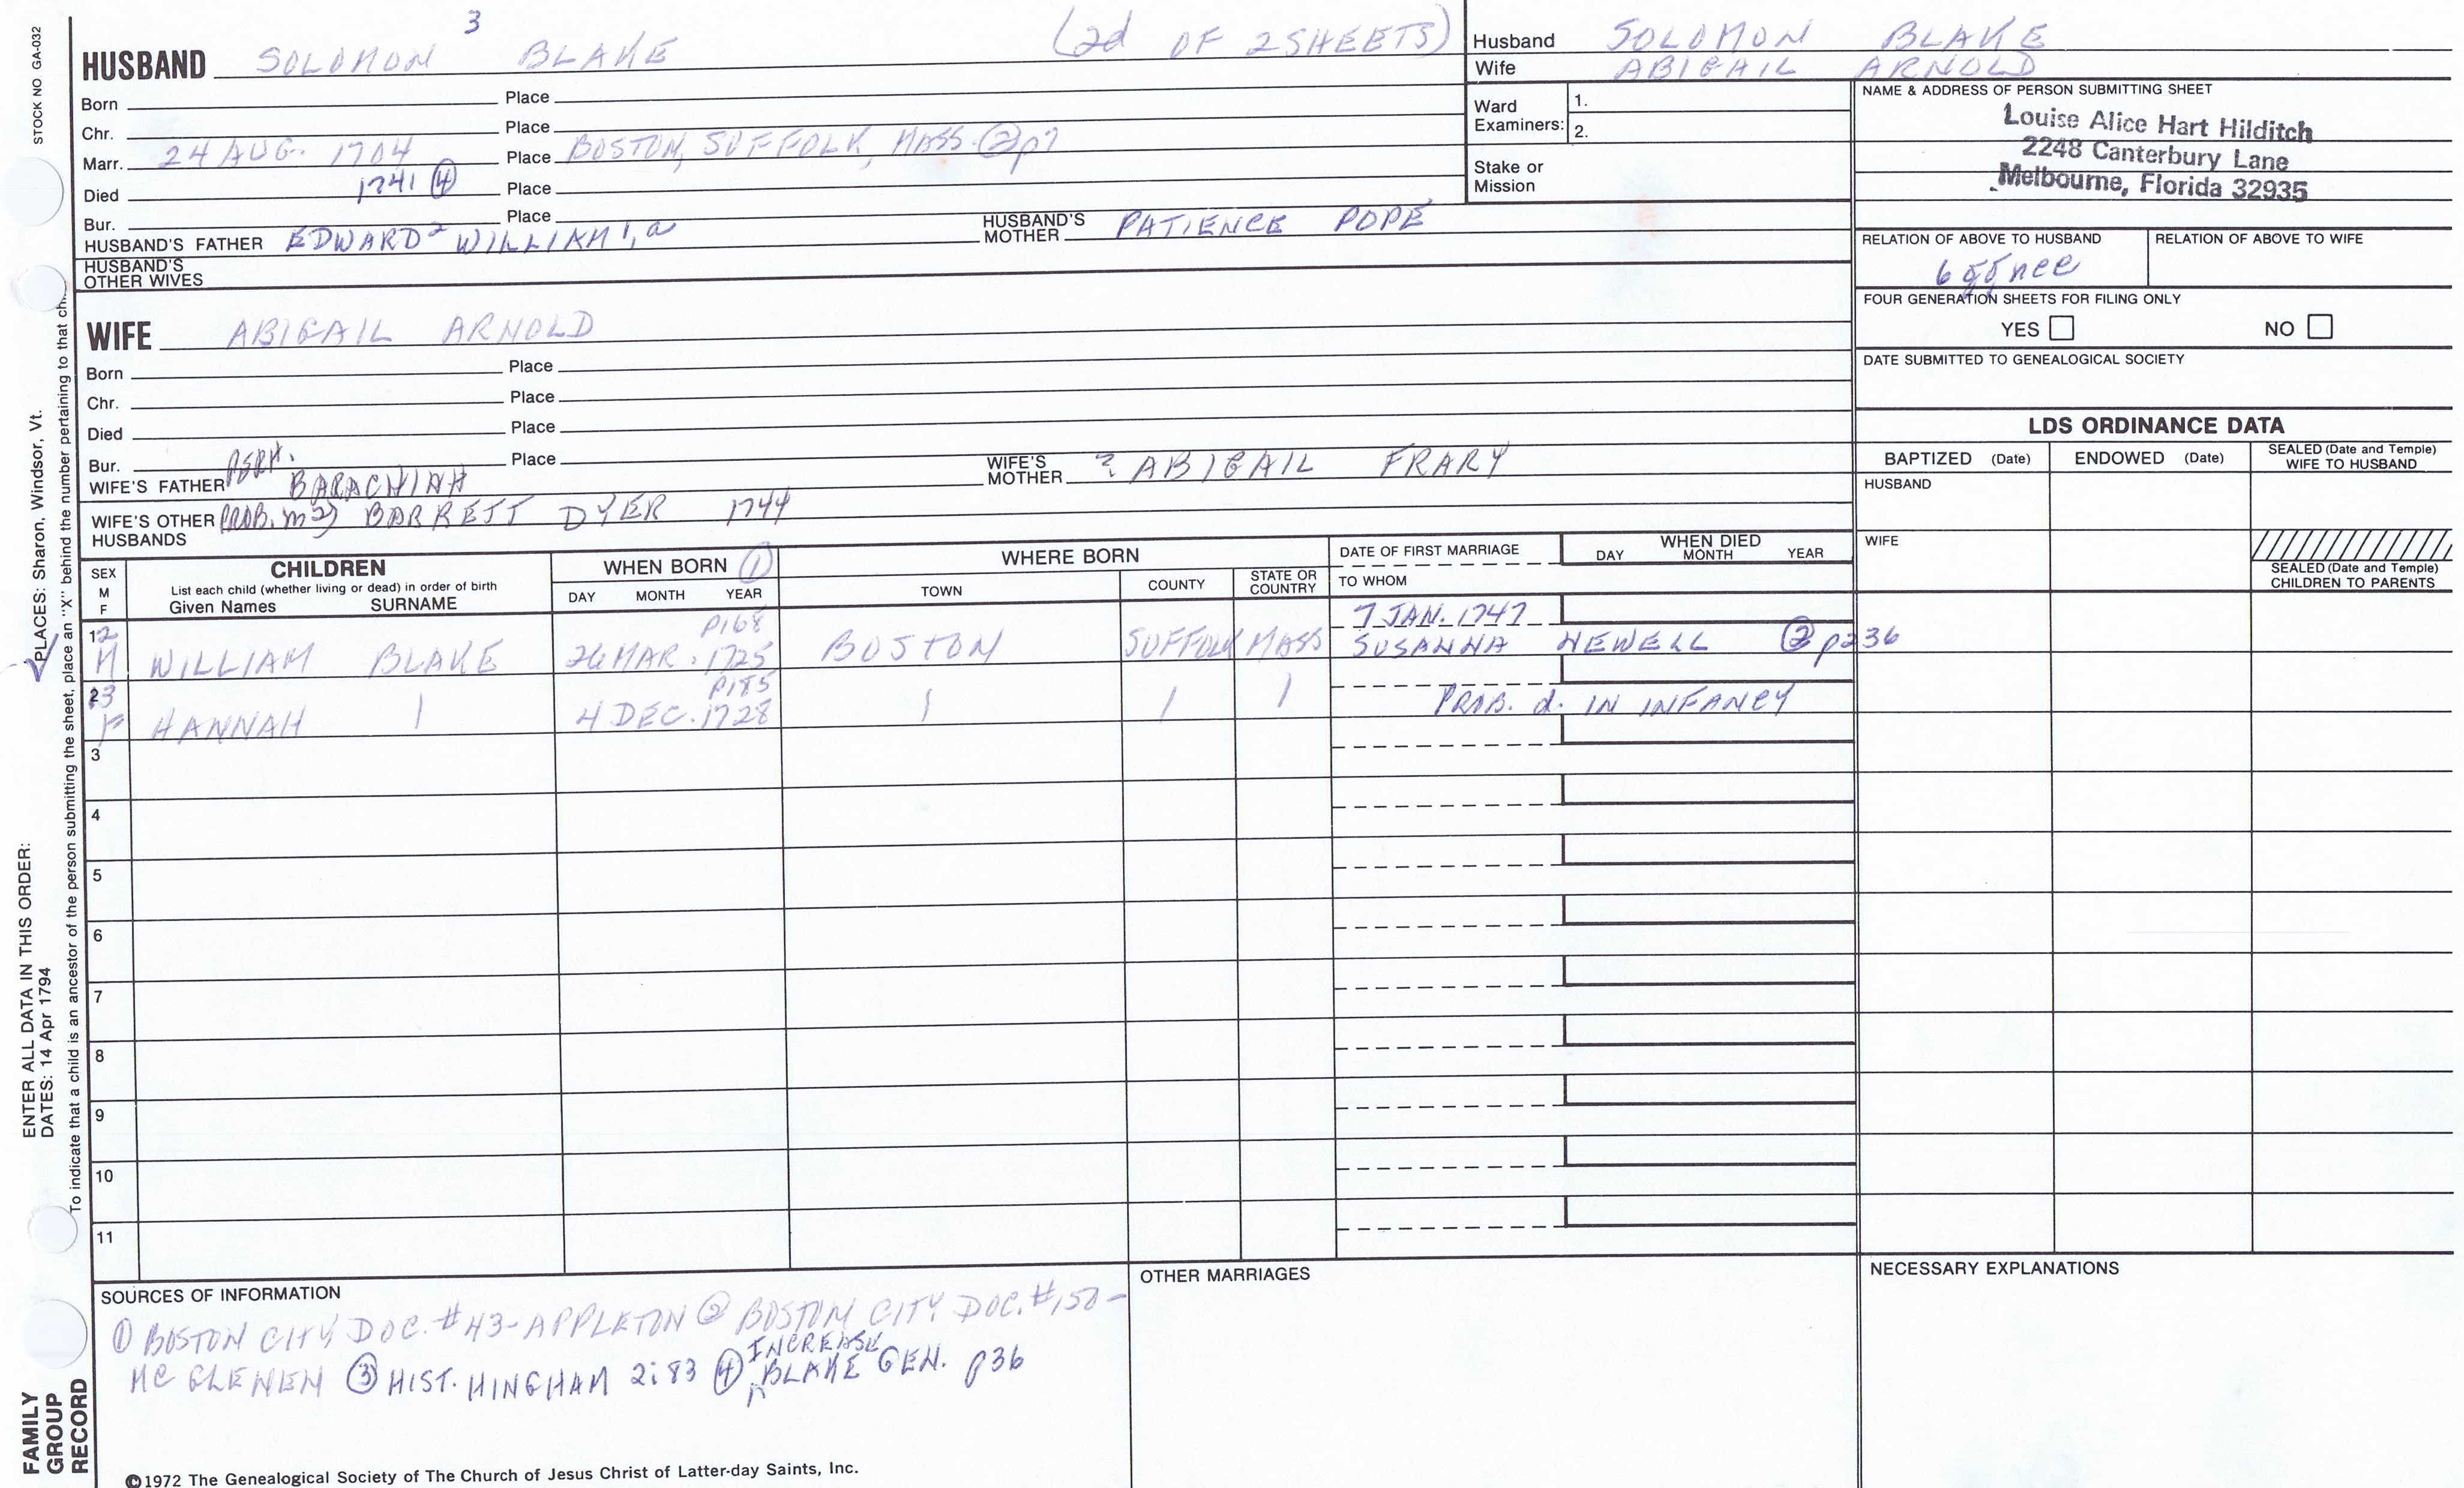 3
(2d OF 2 SHEETS)
HUSBAND SOLOMON BLAKE
Born Place
Chr. Place
Marr. 24 AUG. 1704 Place BOSTON, SUFFOLK, MASS. ② p7
Died 1741 ④ Place
Bur. Place
HUSBAND'S FATHER EDWARD² WILLIAM¹, a HUSBAND'S MOTHER PATIENCE POPE
HUSBAND'S OTHER WIVES
WIFE ABIGAIL ARNOLD
Born Place
Chr. Place
Died Place
Bur. Place
WIFE'S FATHER PERH. BARACHIAH WIFE'S MOTHER ? ABIGAIL FRARY
WIFE'S OTHER HUSBANDS PROB. m 2) BARRETT DYER 1744
Husband SOLOMON BLAKE
Wife ABIGAIL ARNOLD
Ward Examiners: 1.
2.
Stake or Mission
NAME & ADDRESS OF PERSON SUBMITTING SHEET
Louise Alice Hart Hilditch
2248 Canterbury Lane
Melbourne, Florida 32935
RELATION OF ABOVE TO HUSBAND RELATION OF ABOVE TO WIFE
6 gg nee
FOUR GENERATION SHEETS FOR FILING ONLY
YES NO
DATE SUBMITTED TO GENEALOGICAL SOCIETY
LDS ORDINANCE DATA
BAPTIZED (Date) ENDOWED (Date) SEALED (Date and Temple) WIFE TO HUSBAND
HUSBAND
WIFE
SEALED (Date and Temple) CHILDREN TO PARENTS
SEX M F
CHILDREN
List each child (whether living or dead) in order of birth
Given Names SURNAME
WHEN BORN ①
DAY MONTH YEAR
WHERE BORN
TOWN COUNTY STATE OR COUNTRY
DATE OF FIRST MARRIAGE
TO WHOM
WHEN DIED
DAY MONTH YEAR
p168 7 JAN. 1747
12 M WILLIAM BLAKE 26 MAR. 1725 BOSTON SUFFOLK MASS SUSANNA NEWELL ② p236
p185
23 F HANNAH 1 4 DEC. 1728 1 1 1 PROB. d. IN INFANCY
3
4
5
6
7
8
9
10
11
SOURCES OF INFORMATION
① BOSTON CITY DOC. #43-APPLETON ② BOSTON CITY DOC. #150-
MC GLENEN ③ HIST. HINGHAM 2:83 ④ INCREASE BLAKE GEN. p36
OTHER MARRIAGES
NECESSARY EXPLANATIONS
©1972 The Genealogical Society of The Church of Jesus Christ of Latter-day Saints, Inc.
STOCK NO GA-032
ENTER ALL DATA IN THIS ORDER:
DATES: 14 Apr 1794 PLACES: Sharon, Windsor, Vt.
To indicate that a child is an ancestor of the person submitting the sheet, place an "X" behind the number pertaining to that ch
FAMILY
GROUP
RECORD